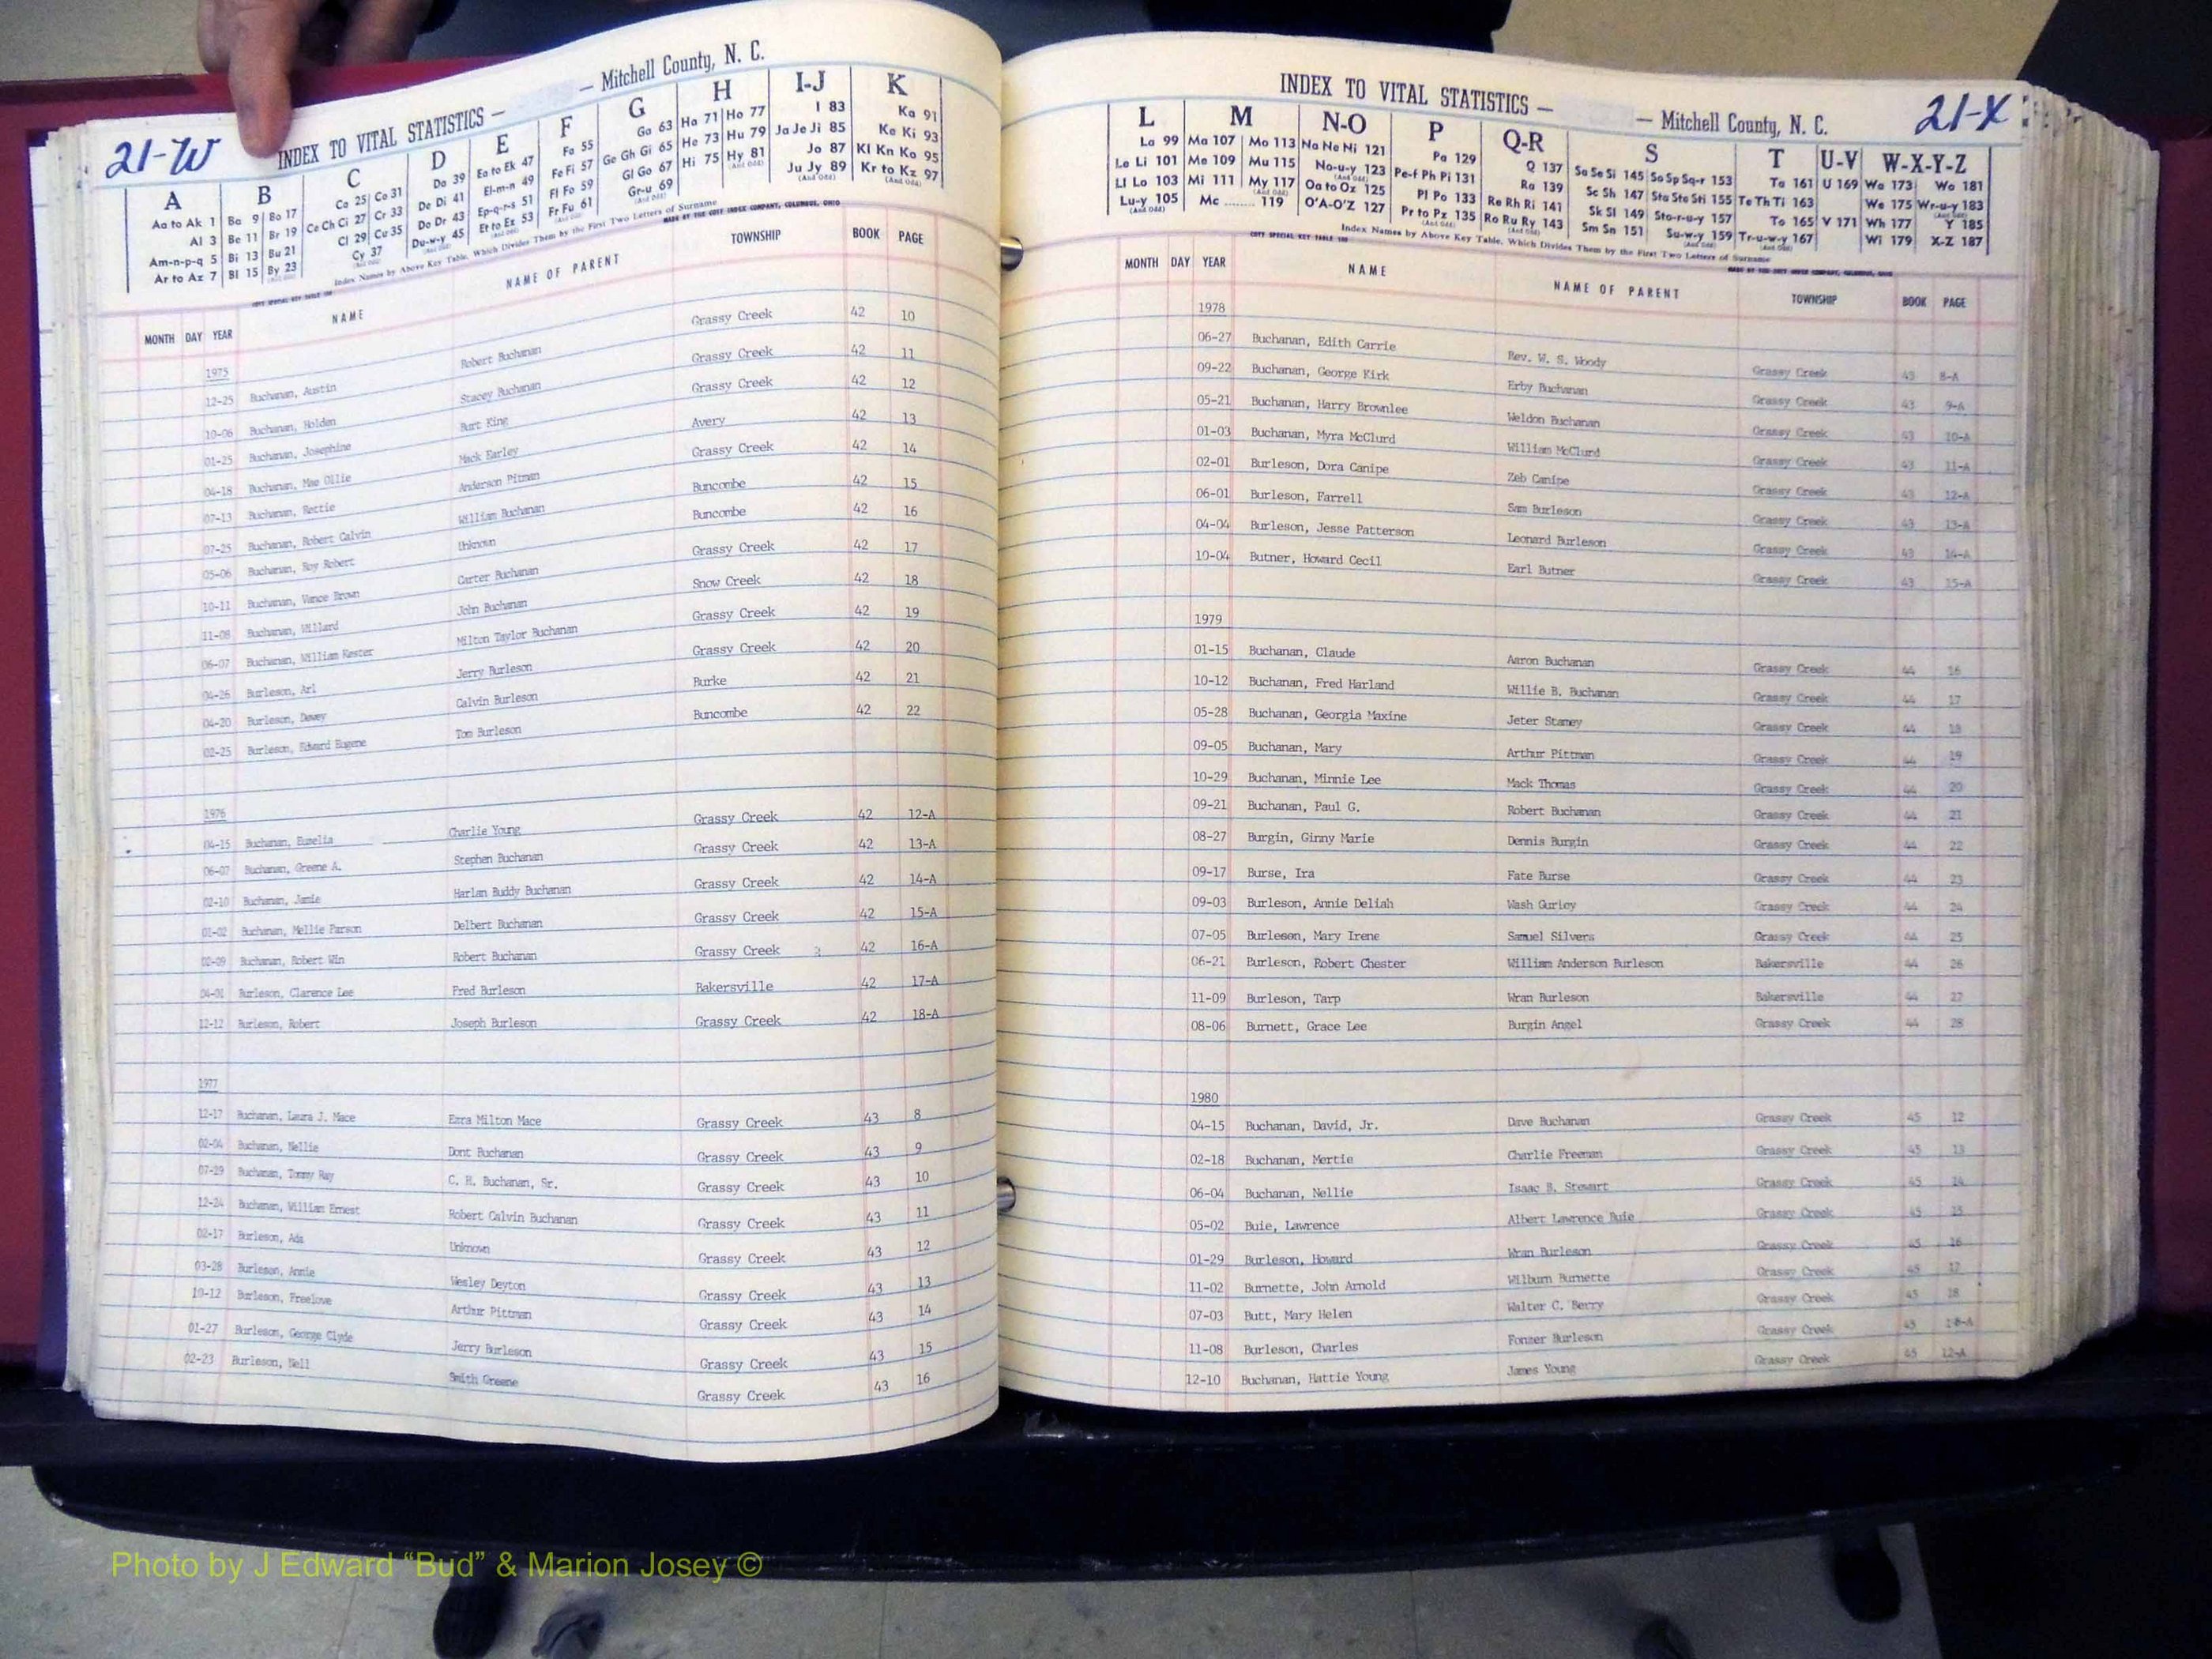 21-W INDEX TO VITAL STATISTICS — — Mitchell County, N. C.
A B C D E F G H I-J K
Aa to Ak 1 Ba 9 Bo 17 Ca 25 Co 31 Da 39 Ea to Ek 47 Fa 55 Ga 63 Ha 71 Ho 77 I 83 Ka 91
Al 3 Be 11 Br 19 Ce Ch Ci 27 Cr 33 De Di 41 El-m-n 49 Fe Fi 57 Ge Gh Gi 65 He 73 Hu 79 Ja Je Ji 85 Ke Ki 93
Am-n-p-q 5 Bi 13 Bu 21 Cl 29 Cu 35 Do Dr 43 Ep-q-r-s 51 Fl Fo 59 Gl Go 67 Hi 75 Hy 81 Jo 87 Kl Kn Ko 95
Ar to Az 7 Bl 15 By 23 Cy 37 Du-w-y 45 Et to Ez 53 Fr Fu 61 Gr-u 69 Ju Jy 89 Kr to Kz 97
Index Names by Above Key Table, Which Divides Them by the First Two Letters of Surname
MADE BY THE COTT INDEX COMPANY, COLUMBUS, OHIO
MONTH DAY YEAR NAME NAME OF PARENT TOWNSHIP BOOK PAGE
1975
12-25 Buchanan, Austin Robert Buchanan Grassy Creek 42 10
10-06 Buchanan, Holden Stacey Buchanan Grassy Creek 42 11
01-25 Buchanan, Josephine Burt King Grassy Creek 42 12
04-18 Buchanan, Mae Ollie Mack Earley Avery 42 13
07-13 Buchanan, Rettie Anderson Pitman Grassy Creek 42 14
07-25 Buchanan, Robert Calvin William Buchanan Buncombe 42 15
05-06 Buchanan, Roy Robert Unknown Buncombe 42 16
10-11 Buchanan, Vance Brown Carter Buchanan Grassy Creek 42 17
11-08 Buchanan, Willard John Buchanan Snow Creek 42 18
06-07 Buchanan, William Kester Milton Taylor Buchanan Grassy Creek 42 19
04-26 Burleson, Arl Jerry Burleson Grassy Creek 42 20
04-20 Burleson, Dewey Calvin Burleson Burke 42 21
02-25 Burleson, Edward Eugene Tom Burleson Buncombe 42 22
1976
04-15 Buchanan, Eumelia Charlie Young Grassy Creek 42 12-A
06-07 Buchanan, Greene A. Stephen Buchanan Grassy Creek 42 13-A
02-10 Buchanan, Jamie Harlan Buddy Buchanan Grassy Creek 42 14-A
01-02 Buchanan, Mellie Parson Delbert Buchanan Grassy Creek 42 15-A
02-09 Buchanan, Robert Win Robert Buchanan Grassy Creek 42 16-A
04-01 Burleson, Clarence Lee Fred Burleson Bakersville 42 17-A
12-12 Burleson, Robert Joseph Burleson Grassy Creek 42 18-A
1977
12-17 Buchanan, Laura J. Mace Ezra Milton Mace Grassy Creek 43 8
02-04 Buchanan, Nellie Dont Buchanan Grassy Creek 43 9
07-29 Buchanan, Tommy Ray C. H. Buchanan, Sr. Grassy Creek 43 10
12-24 Buchanan, William Ernest Robert Calvin Buchanan Grassy Creek 43 11
02-17 Burleson, Ada Unknown Grassy Creek 43 12
03-28 Burleson, Annie Wesley Deyton Grassy Creek 43 13
10-12 Burleson, Freelove Arthur Pittman Grassy Creek 43 14
01-27 Burleson, George Clyde Jerry Burleson Grassy Creek 43 15
02-23 Burleson, Nell Smith Greene Grassy Creek 43 16
INDEX TO VITAL STATISTICS — — Mitchell County, N. C. 21-X
L M N-O P Q-R S T U-V W-X-Y-Z
La 99 Ma 107 Mo 113 Na Ne Ni 121 Pa 129 Q 137 Sa Se Si 145 So Sp Sq-r 153 Ta 161 U 169 Wa 173 Wo 181
Le Li 101 Me 109 Mu 115 No-u-y 123 Pe-f Ph Pi 131 Ra 139 Sc Sh 147 Sta Ste Sti 155 Te Th Ti 163 We 175 Wr-u-y 183
Ll Lo 103 Mi 111 My 117 Oa to Oz 125 Pl Po 133 Re Rh Ri 141 Sk Sl 149 Sto-r-u-y 157 To 165 V 171 Wh 177 Y 185
Lu-y 105 Mc ........ 119 O'A-O'Z 127 Pr to Pz 135 Ro Ru Ry 143 Sm Sn 151 Su-w-y 159 Tr-u-w-y 167 Wi 179 X-Z 187
Index Names by Above Key Table, Which Divides Them by the First Two Letters of Surname
MONTH DAY YEAR NAME NAME OF PARENT TOWNSHIP BOOK PAGE
1978
06-27 Buchanan, Edith Carrie Rev. W. S. Woody Grassy Creek 43 8-A
09-22 Buchanan, George Kirk Erby Buchanan Grassy Creek 43 9-A
05-21 Buchanan, Harry Brownlee Weldon Buchanan Grassy Creek 43 10-A
01-03 Buchanan, Myra McClurd William McClurd Grassy Creek 43 11-A
02-01 Burleson, Dora Canipe Zeb Canipe Grassy Creek 43 12-A
06-01 Burleson, Farrell Sam Burleson Grassy Creek 43 13-A
04-04 Burleson, Jesse Patterson Leonard Burleson Grassy Creek 43 14-A
10-04 Butner, Howard Cecil Earl Butner Grassy Creek 43 15-A
1979
01-15 Buchanan, Claude Aaron Buchanan Grassy Creek 44 16
10-12 Buchanan, Fred Harland Willie B. Buchanan Grassy Creek 44 17
05-28 Buchanan, Georgia Maxine Jeter Stamey Grassy Creek 44 18
09-05 Buchanan, Mary Arthur Pittman Grassy Creek 44 19
10-29 Buchanan, Minnie Lee Mack Thomas Grassy Creek 44 20
09-21 Buchanan, Paul G. Robert Buchanan Grassy Creek 44 21
08-27 Burgin, Ginny Marie Dennis Burgin Grassy Creek 44 22
09-17 Burse, Ira Fate Burse Grassy Creek 44 23
09-03 Burleson, Annie Deliah Wash Gurley Grassy Creek 44 24
07-05 Burleson, Mary Irene Samuel Silvers Grassy Creek 44 25
06-21 Burleson, Robert Chester William Anderson Burleson Bakersville 44 26
11-09 Burleson, Tarp Wran Burleson Bakersville 44 27
08-06 Burnett, Grace Lee Burgin Angel Grassy Creek 44 28
1980
04-15 Buchanan, David, Jr. Dave Buchanan Grassy Creek 45 12
02-18 Buchanan, Mertie Charlie Freeman Grassy Creek 45 13
06-04 Buchanan, Nellie Isaac B. Stewart Grassy Creek 45 14
05-02 Buie, Lawrence Albert Lawrence Buie Grassy Creek 45 15
01-29 Burleson, Howard Wran Burleson Grassy Creek 45 16
11-02 Burnette, John Arnold Wilburn Burnette Grassy Creek 45 17
07-03 Butt, Mary Helen Walter C. Berry Grassy Creek 45 18
11-08 Burleson, Charles Fonzer Burleson Grassy Creek 45
12-10 Buchanan, Hattie Young James Young Grassy Creek 45 12-A
Photo by J Edward “Bud” & Marion Josey ©